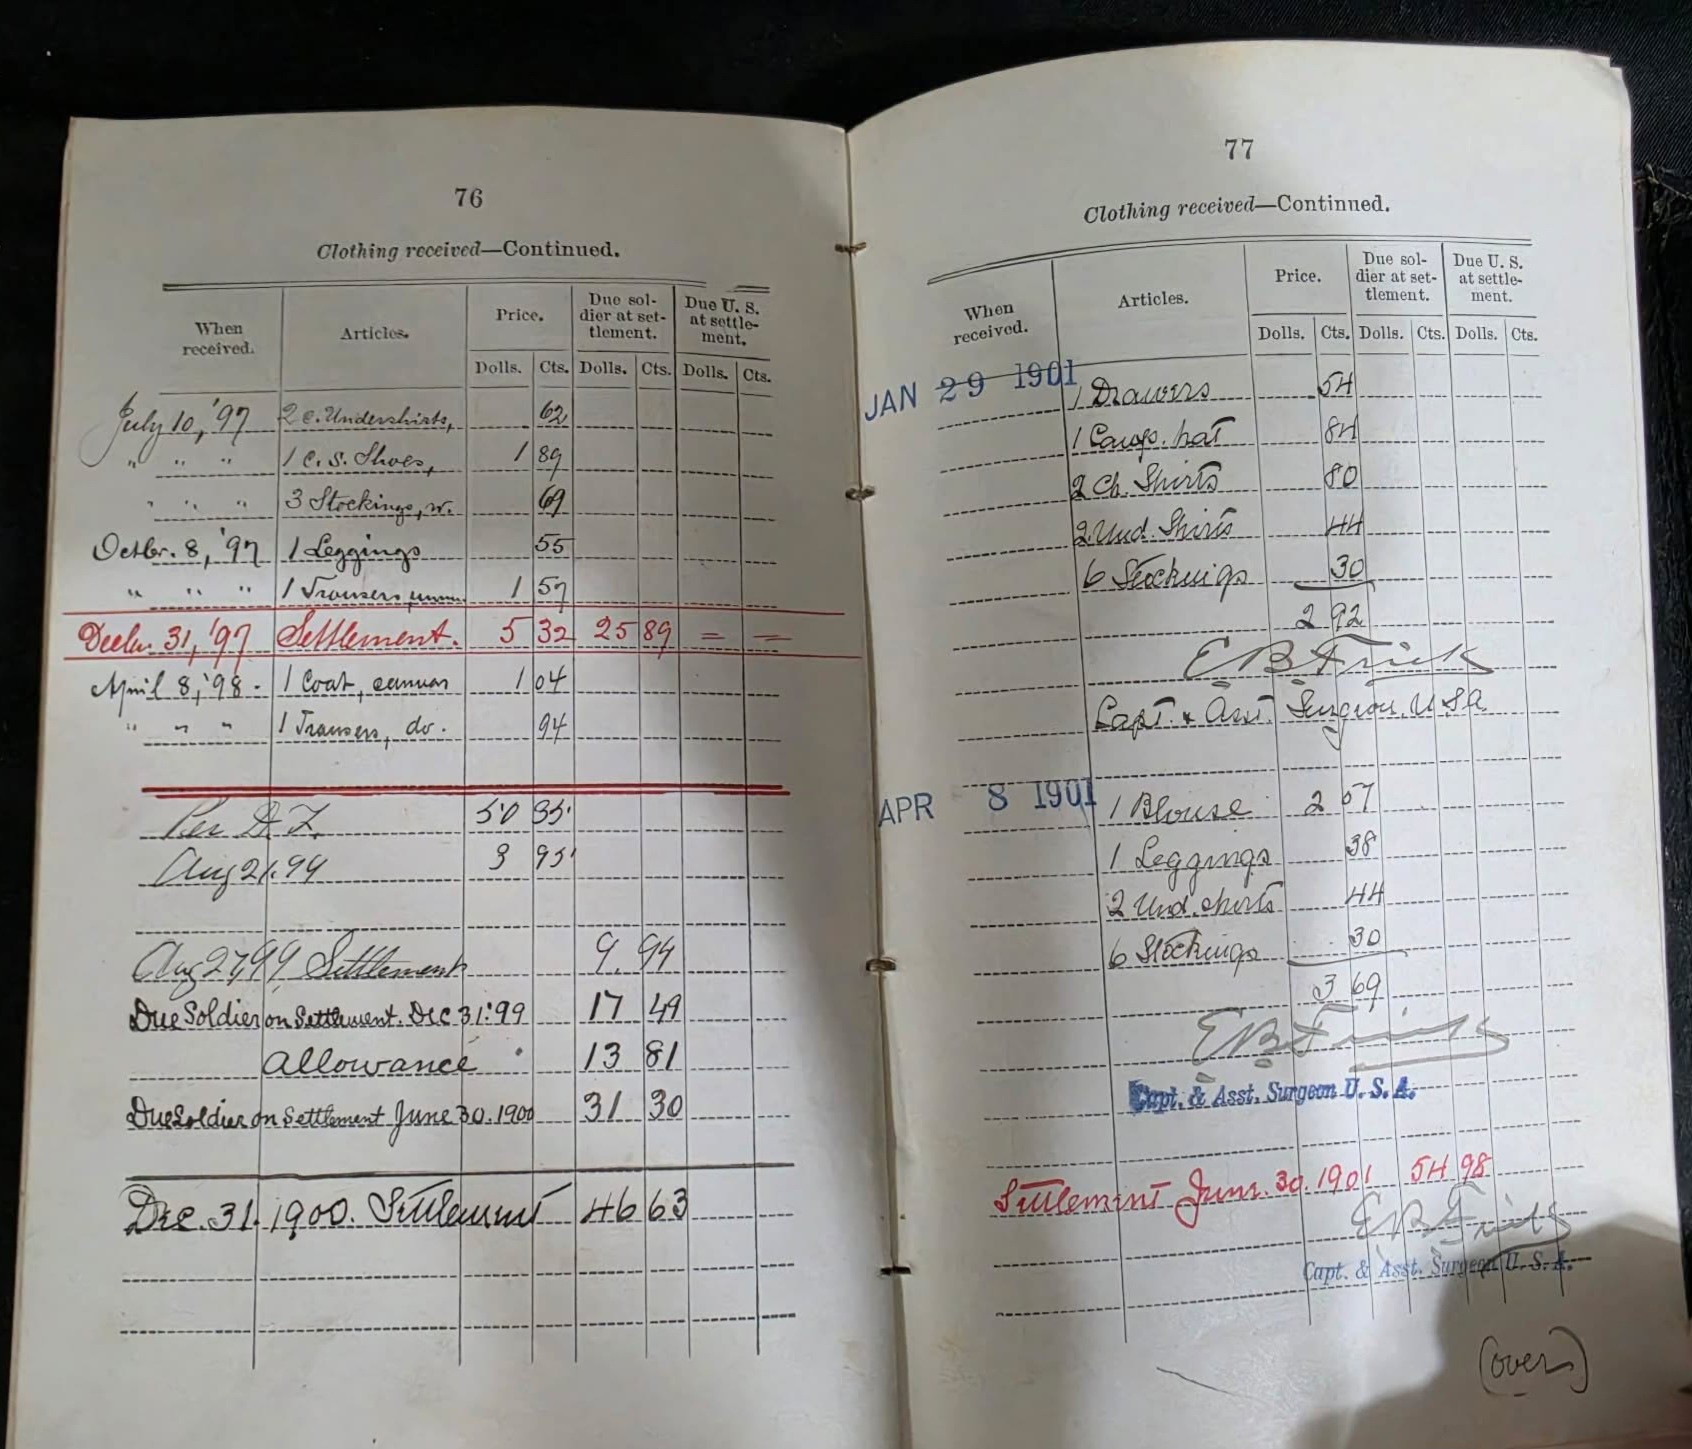 76
Clothing received—Continued.
When received. Articles. Price. Due soldier at settlement. Due U. S. at settlement.
Dolls. Cts. Dolls. Cts. Dolls. Cts.
July 10, '97 2 c. Undershirts, 62
" " " 1 C. S. Shoes, 1 89
" " " 3 Stockings, w. 69
Octbr. 8, '97 1 Leggings 55
" " " 1 Trousers, 1 57
Decbr. 31, '97 Settlement. 5 32 25 89 = =
April 8, '98. 1 Coat, canvas 1 04
" " " 1 Trousers, do. 94
Per D. F. 50 35
Aug 21, 99 3 95
Aug 27, 99 Settlement 9. 94
Due Soldier on Settlement. Dec 31: '99 17 49
Allowance 13 81
Due Soldier on Settlement June 30. 1900 31 30
Dec. 31. 1900. Settlement 46 63
77
Clothing received—Continued.
When received. Articles. Price. Due soldier at settlement. Due U. S. at settlement.
Dolls. Cts. Dolls. Cts. Dolls. Cts.
JAN 29 1901 1 Drawers 54
1 Camp. hat 84
2 Ch. Shirts 80
2 Und. Shirts 44
6 Stockings 30
2 92
E B Frick
Capt. & Asst. Surgeon, U S A
APR 8 1901 1 Blouse 2 57
1 Leggings 38
2 Und. shirts 44
6 Stockings 30
3 69
E B Frick
Capt. & Asst. Surgeon U. S. A.
Settlement June. 30. 1901 54 98
E B Frick
Capt. & Asst. Surgeon U. S. A.
(over)